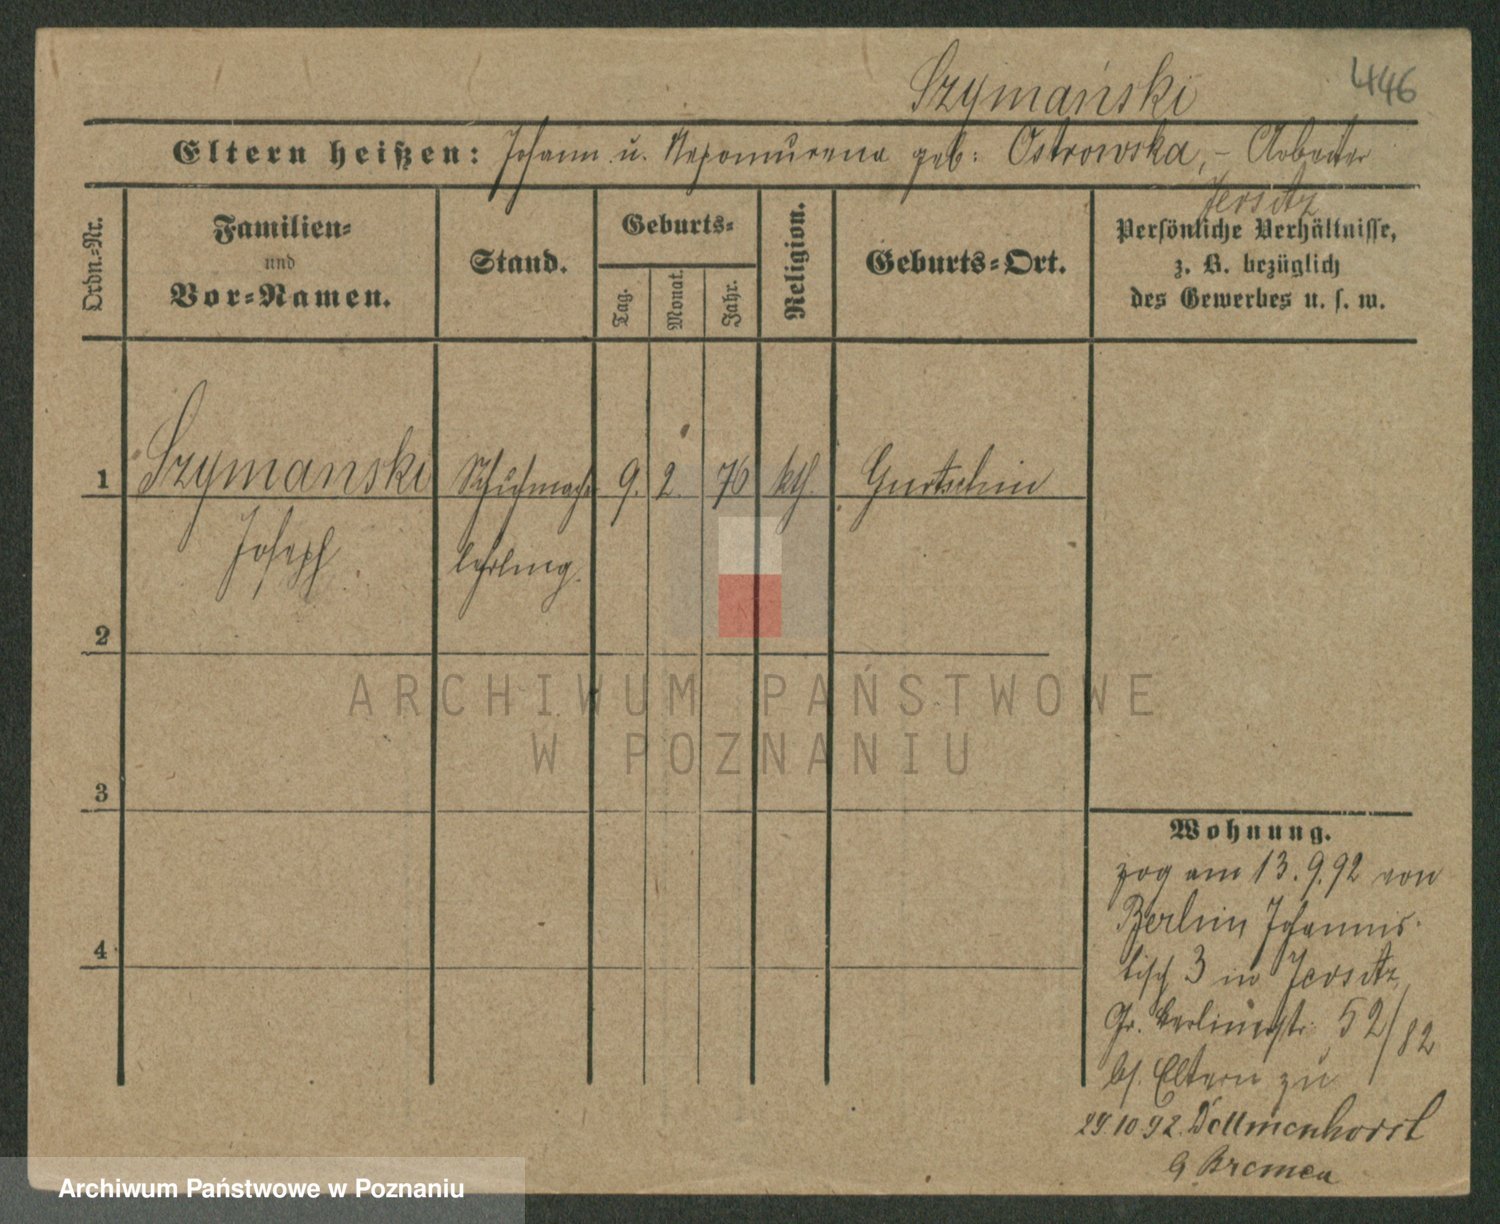 Szymański
446
Eltern heißen: Johann u. Nepomucena geb: Ostrowska, – Arbeiter
Jersitz
Ordn.-Nr.
Familien-
und
Vor-Namen.
Stand.
Geburts-
Tag.
Monat.
Jahr.
Religion.
Geburts-Ort.
Persönliche Verhältnisse,
z. B. bezüglich
des Gewerbes u. s. w.
1 Szymanski Schuhmacher 9. 2. 76 kth. Gurtschin
Joseph lehrling.
2
ARCHIWUM PAŃSTWOWE
W POZNANIU
3
Wohnung.
zog am 13.9.92 von
Berlin, Johannis-
tisch 3 in Jersitz,
Gr. Berlinerstr. 52/82
bs. Eltern zu
29.10.92. Delmenhorst
Bremen
4
Archiwum Państwowe w Poznaniu